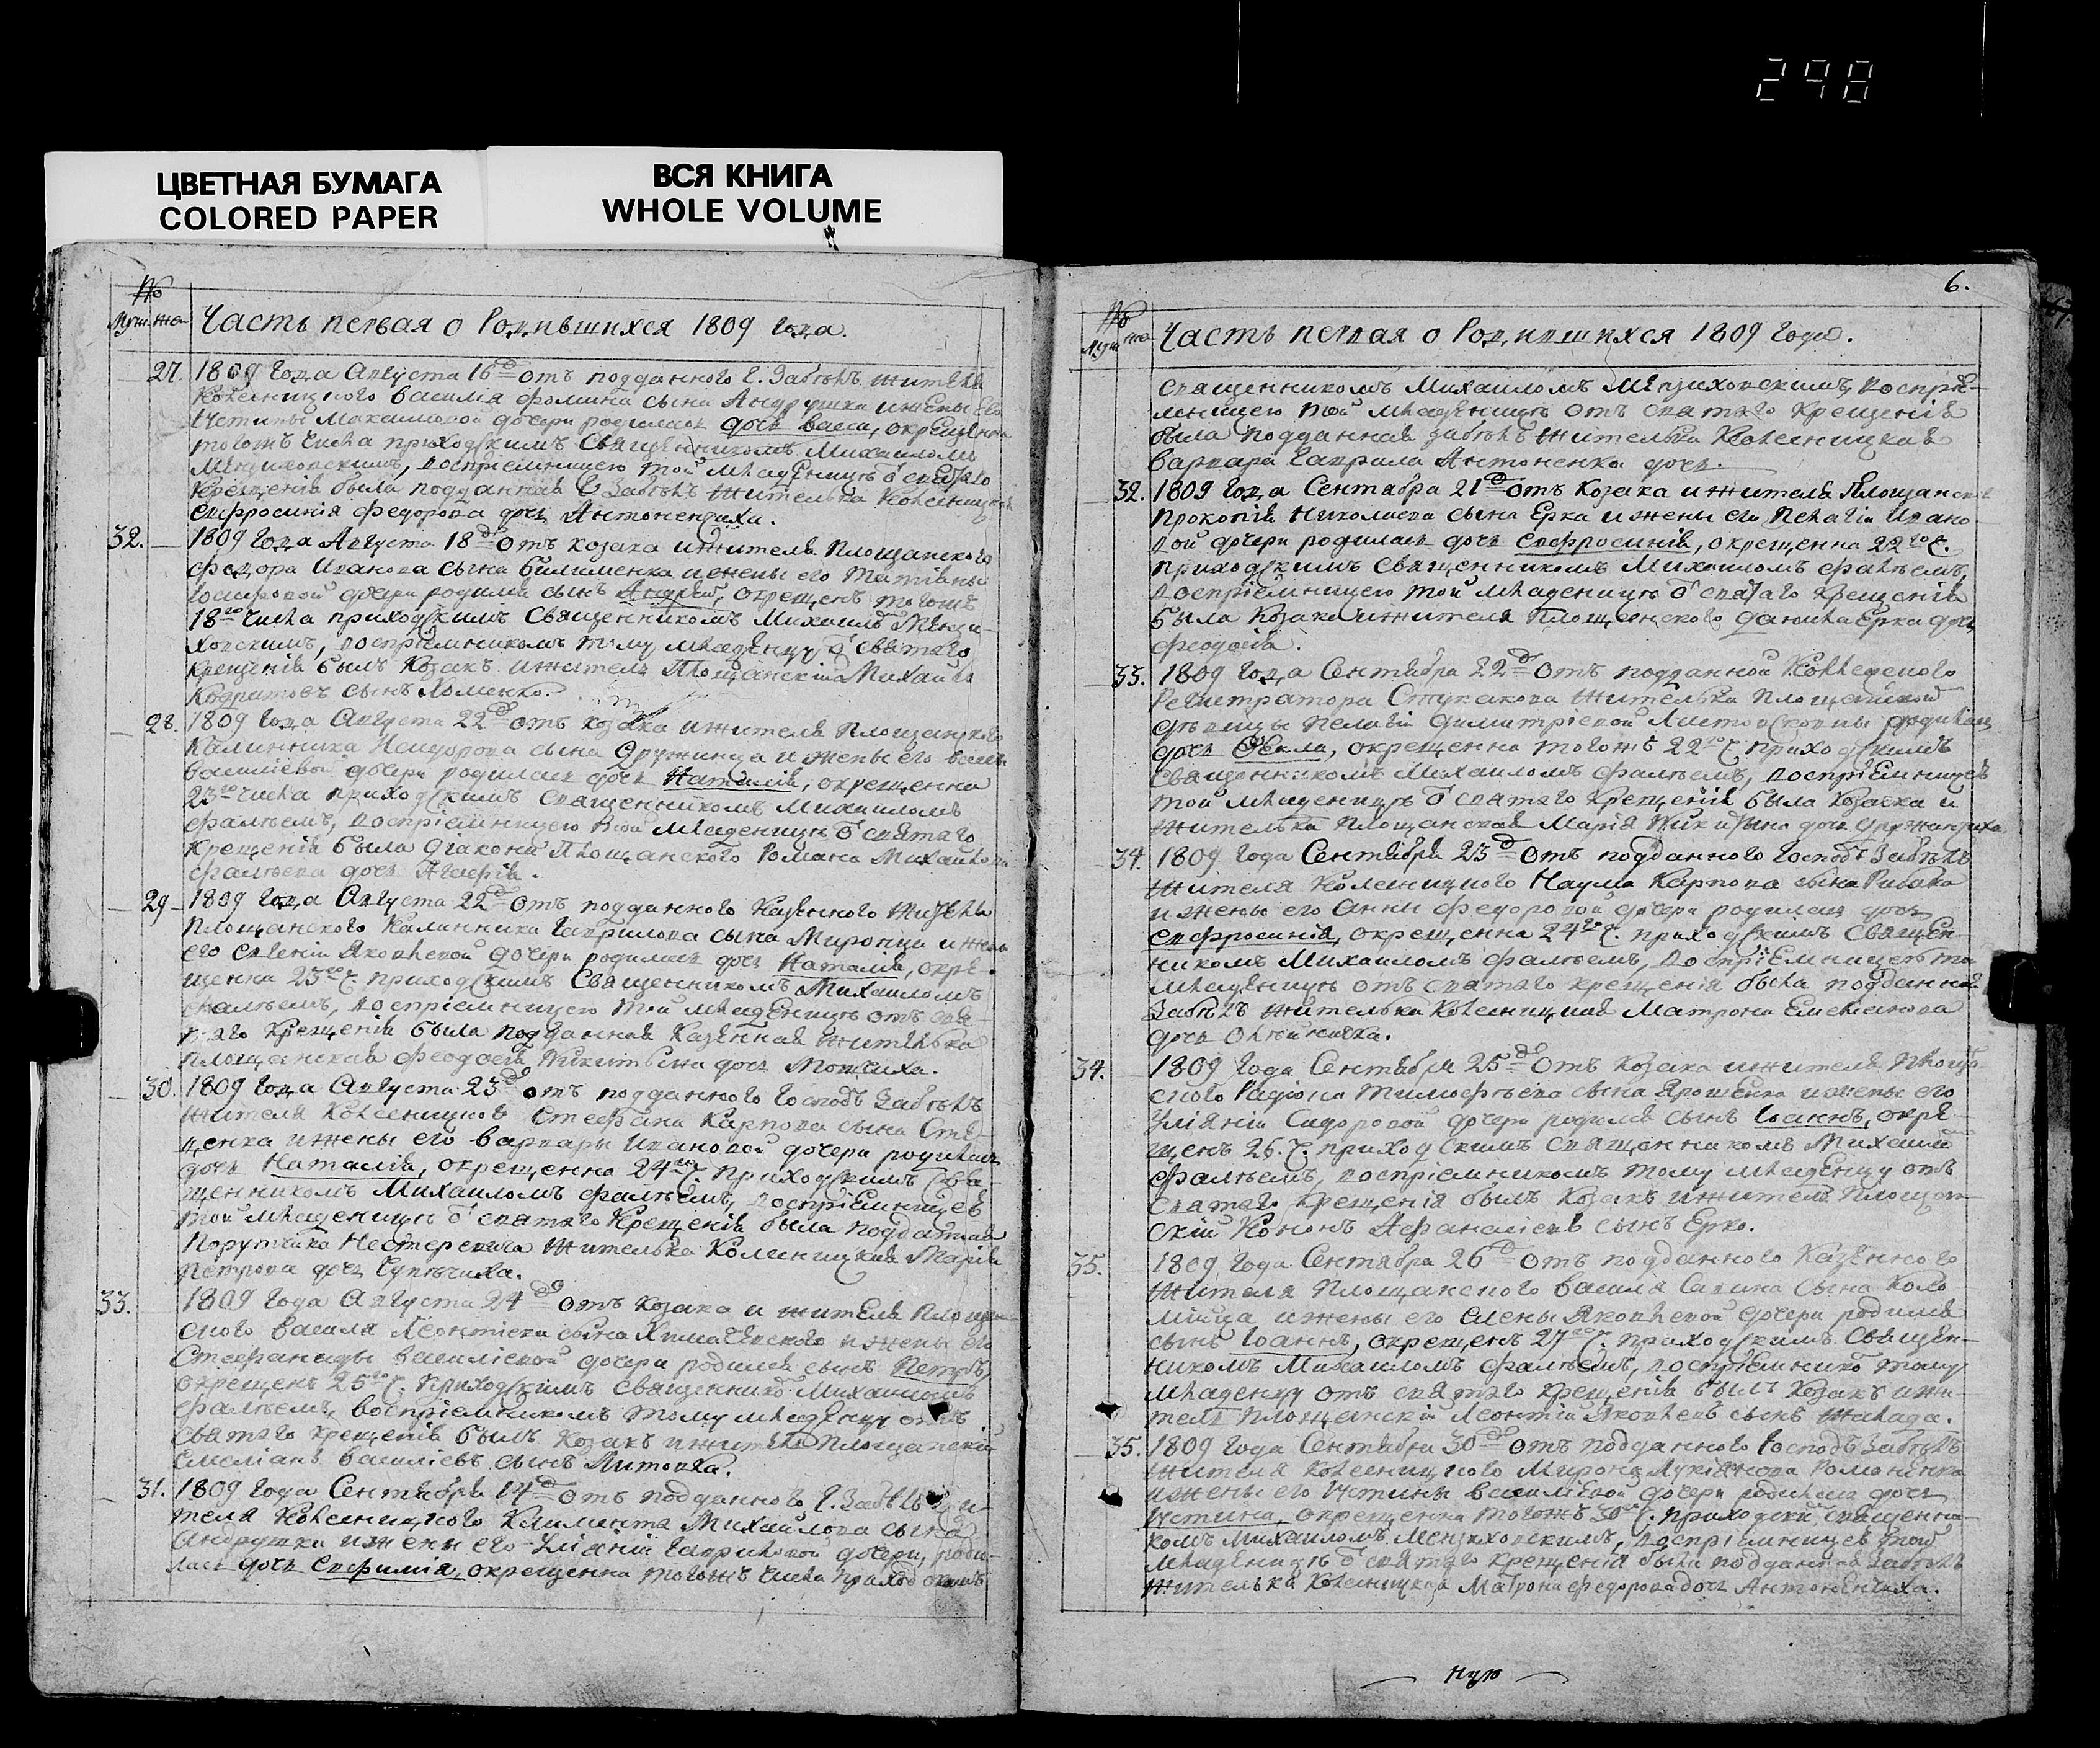 298
ЦВЕТНАЯ БУМАГА
COLORED PAPER
ВСЯ КНИГА
WHOLE VOLUME
№
Муж. жен.
Часть первая о Родившихся 1809 года.
27. 1809 года Августа 16 отъ подданного Г. Забѣлъ жителя
Колесницкого Василія Фомина сына Андрушки и жены его
Устины Максимовой дочери родилась дочь Васса, окрещенна
тогожъ числа приходскимъ Священникомъ Михаиломъ
Мензиховскимъ, воспріемницею той младеницѣ ѿ святаго
Крещенія была подданная Г. Забѣлъ жителька Колесницкая
Евфросинія Федорова дочь Антоненчиха.
32. 1809 года Августа 18 отъ козака и жителя Площанского
Федора Иванова сына Билименка и жены его Татіяны
дочери родился сынъ Андрей, окрещенъ тогожъ
18го числа приходскимъ Священникомъ Михаиломъ Мензи-
ховскимъ, воспріемникомъ тому младенцу ѿ святаго
Крещенія былъ Козакъ и житель Площанскій Михайло
Кодратовъ сынъ Хоменко.
28. 1809 года Августа 22 отъ козака и жителя Площанского
Калинника Исидорова сына Дружинца и жены его
Василіевой дочери родилась дочь Наталія, окрещенна
23го числа приходскимъ Священникомъ Михаиломъ
Фалѣемъ, воспріемницею той младеницѣ ѿ святаго
Крещенія была Діакона Площанского Романа Михайлова
Фалѣева дочь Гликерія.
29. 1809 года Августа 22 отъ подданного Казенного жителя
Площанского Калинника Гаврилова сына Миронца и жены
его Евгеніи Яковлевой дочери родилась дочь Наталія, окре-
щенна 23го ч. приходскимъ Священникомъ Михаиломъ
Фалѣемъ, воспріемницею той младеницѣ отъ свя-
таго Крещенія была подданная Казенная жителька
Площанская Феодосія Никитина дочь
30. 1809 года Августа 23 отъ подданного Господъ Забѣлъ
жителя Колесницкого Стефана Карпова сына
ценка и жены его Варвары Ивановой дочери родилась
дочь Наталія, окрещенна 24го ч. приходскимъ Свя-
щенникомъ Михаиломъ Фалѣемъ, воспріемницею
той младеницѣ ѿ святаго Крещенія была подданная
Порутчика Нестеревича жителька Колесницкая Марія
Петрова дочь
33. 1809 года Августа 24 отъ козака и жителя Площан-
ского Василя Леонтіева сына и жены его
Стефаниды Василіевой дочери родился сынъ Петръ,
окрещенъ 25го ч. приходскимъ Священнико Михаиломъ
Фалѣемъ, воспріемникомъ тому младенцу отъ
Святаго Крещенія былъ Козакъ и житель Площанскій
Емеліанъ Василіевъ сынъ Литовка.
31. 1809 года Сентября 14 отъ подданного Г. Забѣлъ жи-
теля Колесницкого Климента Михайлова сына
Андрушки и жены его Уліаніи Гавриловой дочери, роди-
лась дочь Евфимія, окрещенна тогожъ числа приходскимъ
6.
№
Муж. жен.
Часть первая о Родившихся 1809 года.
священникомъ Михаиломъ Мензиховскимъ, воспріе-
мницею той младеницѣ отъ святаго Крещенія
была подданная Забѣлъ жителька Колесницкая
Варвара Гаврила Антоненка дочь.
32. 1809 года Сентября 21 отъ Козака и жителя Площанского
Прокопія Николаева сына Ерка и жены его Пелагіи Ивано-
вой дочери родилась дочь Евфросинія, окрещенна 22го ч.
приходскимъ Священникомъ Михаиломъ Фалѣемъ,
воспріемницею той младеницѣ ѿ святаго Крещенія
была Козака и жителя Площанского Данила Ерка дочь
Феодосія.
33. 1809 года Сентября 22 отъ подданной Коллежского
Регистратора Ступакова жителька Площанской
дѣвицы Пелагіи Димитріевой родилась
дочь Фекла, окрещенна тогожъ 22го ч. приходскимъ
Священникомъ Михаиломъ Фалѣемъ, воспріемницею
той младеницѣ ѿ святаго Крещенія была Козачка и
жителька Площанская Марія Никитина дочь Дружинчиха
34. 1809 года Сентября 23 отъ подданного Господъ Забѣлъ
жителя Колесницкого Наума Карпова сына Рибака
и жены его Анны Федоровой дочери родилась дочь
Евфросинія, окрещенна 24го ч. приходскимъ Священ-
никомъ Михаиломъ Фалѣемъ, воспріемницею той
младеницѣ отъ святаго крещенія была подданная
Забѣлъ жителька Колесницкая Матрона Емеліянова
дочь Олѣйничка.
34. 1809 года Сентября 25 отъ Козака и жителя Площан-
ского Радіона Тимофѣева сына Ярошенка и жены его
Уліяніи Сидоровой дочери родился сынъ Іоаннъ, окре-
щенъ 26. ч. приходскимъ священникомъ Михаило
Фалѣемъ, воспріемникомъ тому младенцу отъ
Святаго Крещенія былъ Козакъ и житель Площан-
скій Кононъ Афанасіевъ сынъ Ерко.
35. 1809 года Сентября 26 отъ подданного Казенного
жителя Площанского Василія Савина сына Коло-
мійца и жены его Елены Яковлевой дочери родился
сынъ Іоаннъ, окрещенъ 27го ч. приходскимъ Священ-
никомъ Михаиломъ Фалѣемъ, воспріемнико тому
младенцу отъ святаго Крещенія былъ Козакъ и жи-
тель Площанскій Леонтій Яковлевъ сынъ
35. 1809 года Сентября 30 отъ подданного Господъ Забѣлъ
жителя Колесницкого Мирона Лукіянова Романенка
и жены его Устины Василіевой дочери родилась дочь
Устина, окрещенна тогожъ 30го ч. приходски священни-
комъ Михаиломъ Мензиховскимъ, воспріемницею той
младеницѣ ѿ святаго крещенія была подданная Забѣлъ
жителька Колесницкая Матрона Федорова дочь Антоненчиха.